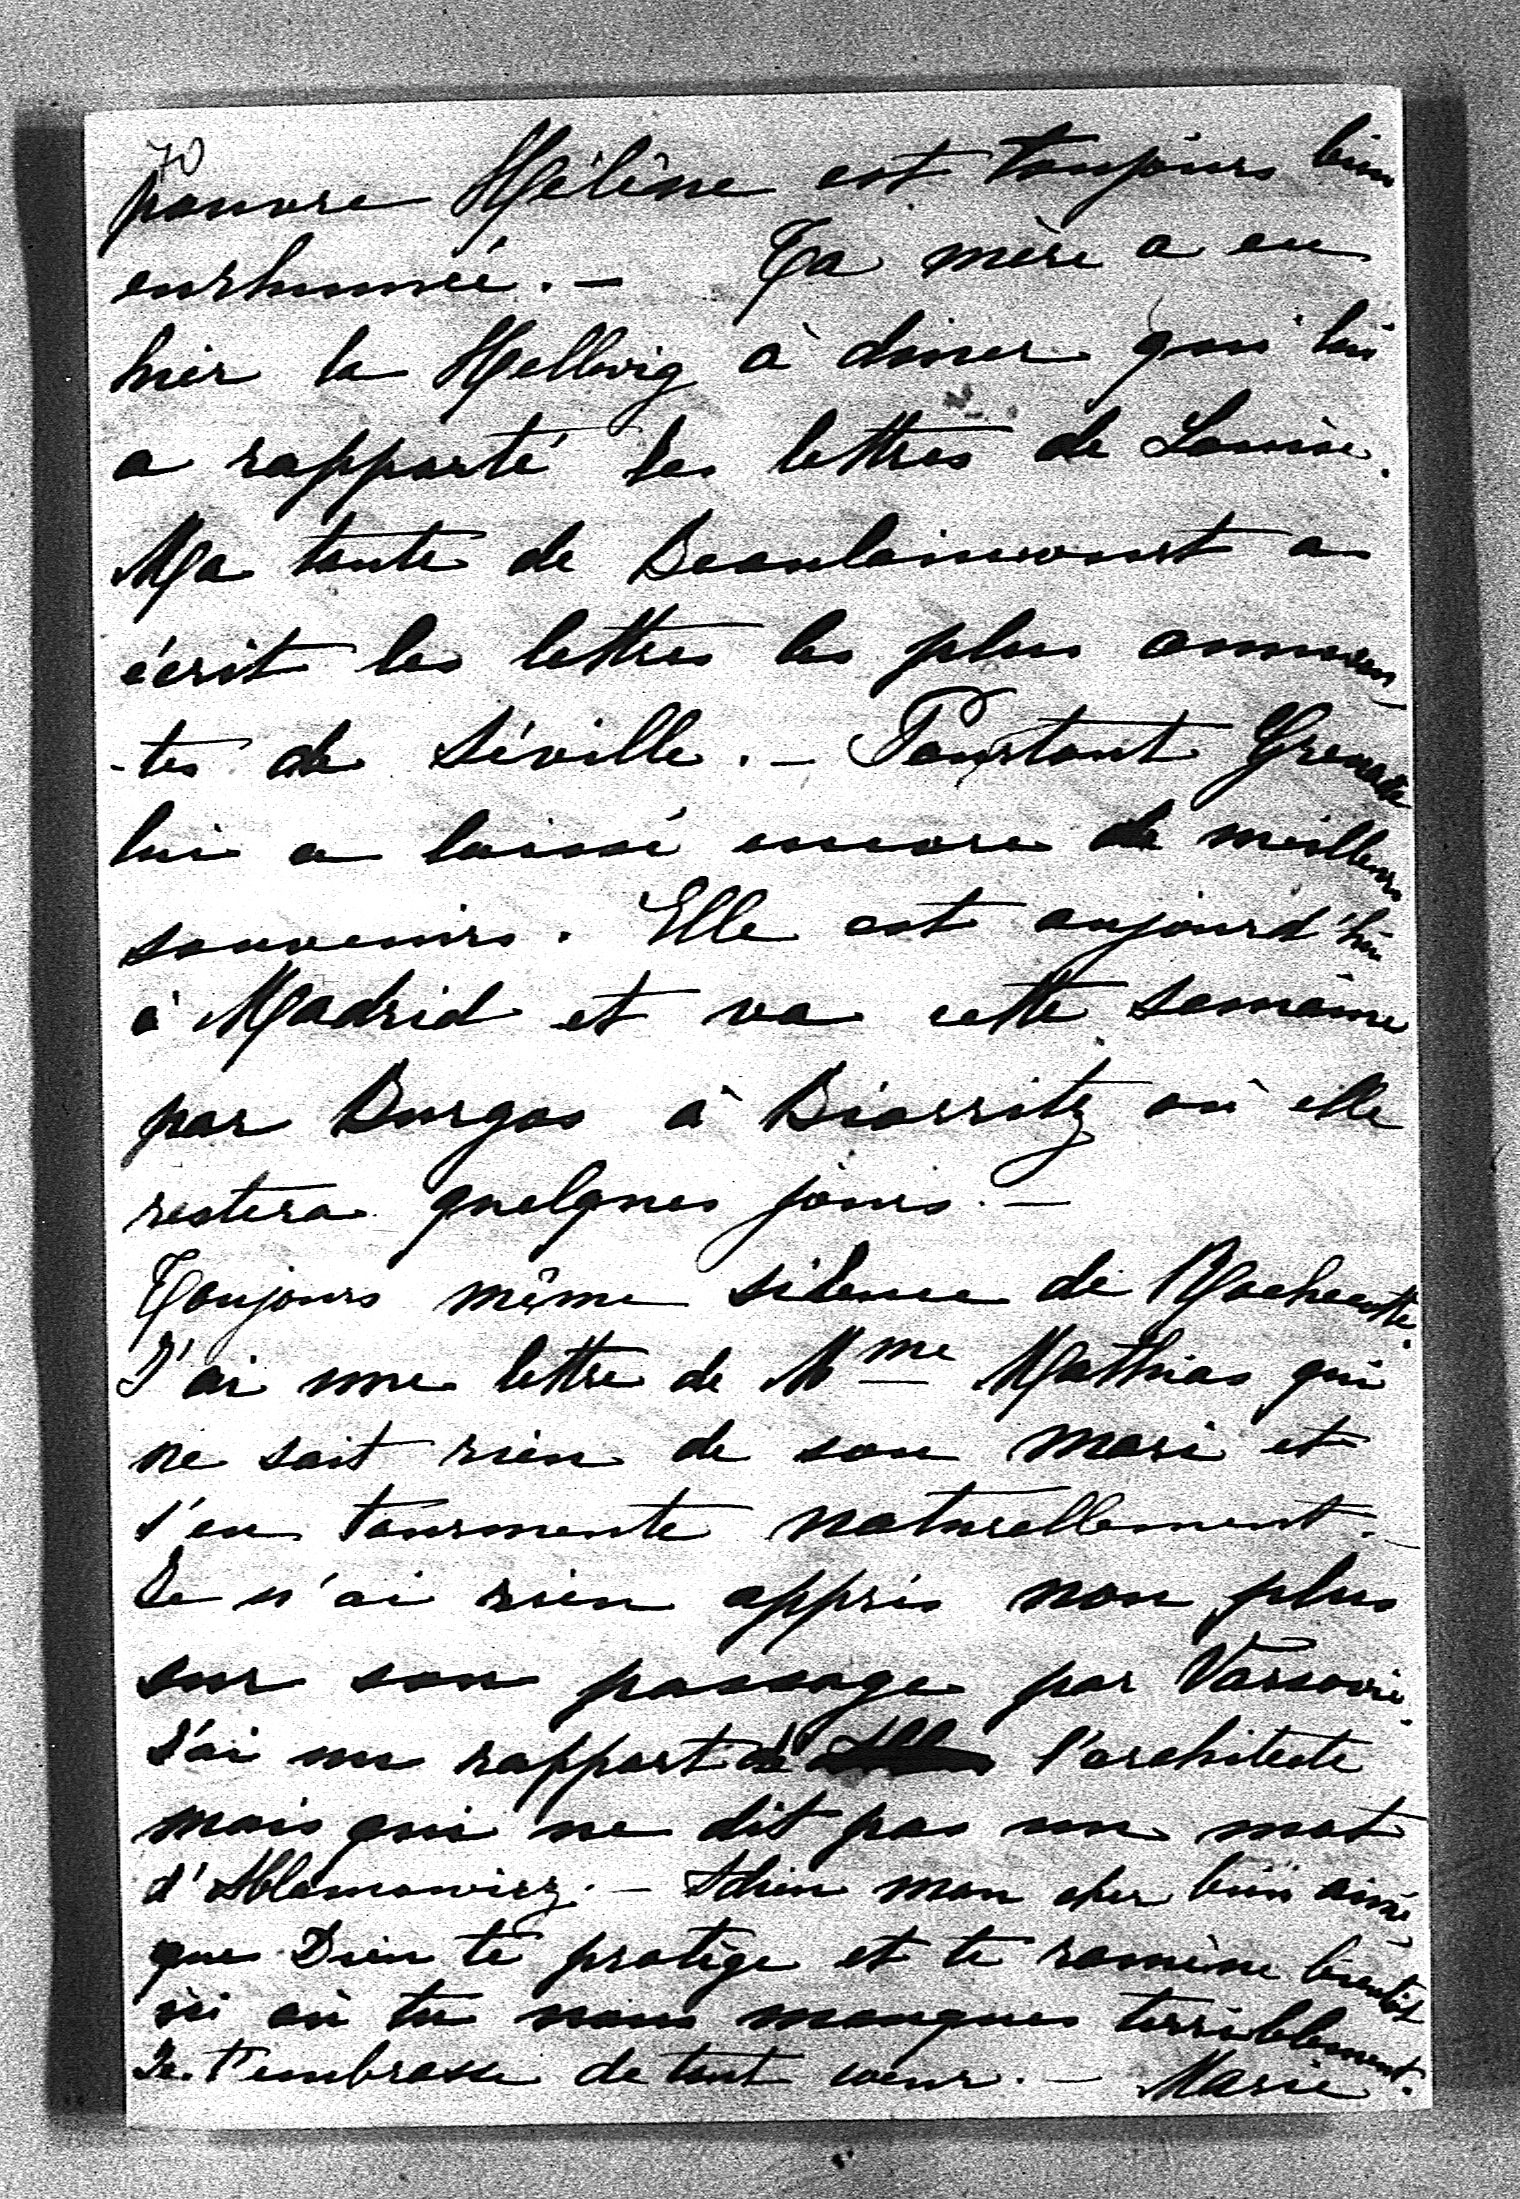 70
pauvre Hélène est toujours bien
enrhumée. — Ta mère a eu
hier la Hellwig à diner qui lui
a rapporté les lettres de Louise.
Ma tante de Beaulaincourt a
écrit les lettres les plus amusan-
-tes de Séville. — Pourtant Grenade
lui a laissé encore de meilleurs
souvenirs. Elle est aujourd'hui
à Madrid et va cette semaine
par Burgos à Biarritz où elle
restera quelques jours. —
Toujours même silence de Rochecotte.
J'ai une lettre de Mme Mathias qui
ne sait rien de son mari et
s'en tourmente naturellement. —
Je n'ai rien appris non plus
sur son passage par Varsovie.
J'ai un rapport de l'architecte
mais qui ne dit pas un mot
d'Ablamowicz. — Adieu mon cher bien aimé
que Dieu te protège et te ramène bientôt
ici où tu nous manques terriblement.
Je t'embrasse de tout coeur. — Marie